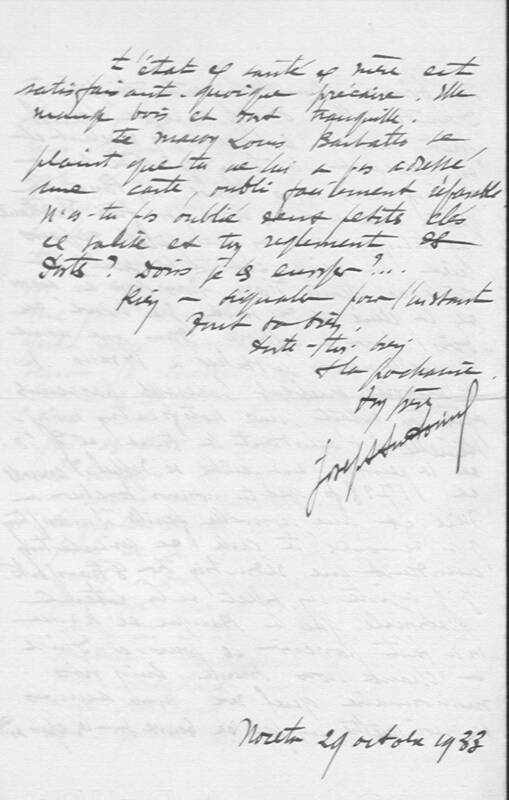 L'état de santé de mère est
satisfaisant - quoique précaire. Elle
mange bois et dort tranquille.
Louis Barbatto se
plaint que tu ne lui a pas adressé
une carte, oubli facilement réparable
N'as-tu pas oublié deux petites clés
de valise et ton reglement de
? Dois je les envoyer ?...
Rien à signaler pour l'instant
Tout va bien.
Porte-toi bien
A la prochaine.
Ton père
Joseph
29 octobre 1933